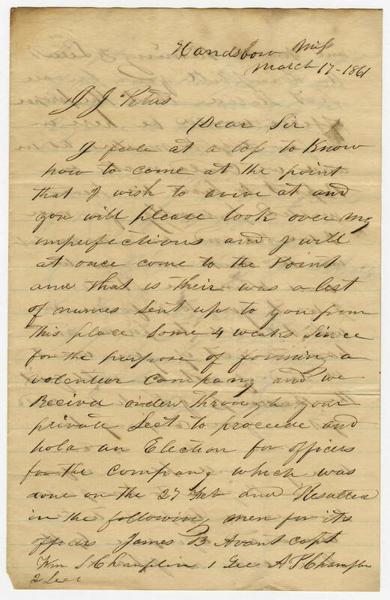 Handsboro Miss
March 17 - 1861
J J Pettus
Dear Sir
I feele at a loss to know
how to come at the point
that I wish to arive at and
you will please look over my
imperfections and I will
at once come to the Point
and that is their was a list
of names sent up to you from
this place Some 4 weeks since
for the purpose of forming a
volenteer company and we
Recivd orders through your
private Sect to proceede and
hold an Election for officers
for the company which was
done on the 27 Feb and Resulted
in the following men for its
officers James B Avant Capt
Wm S Champlin 1 Lee A P Champlin
2 Lee